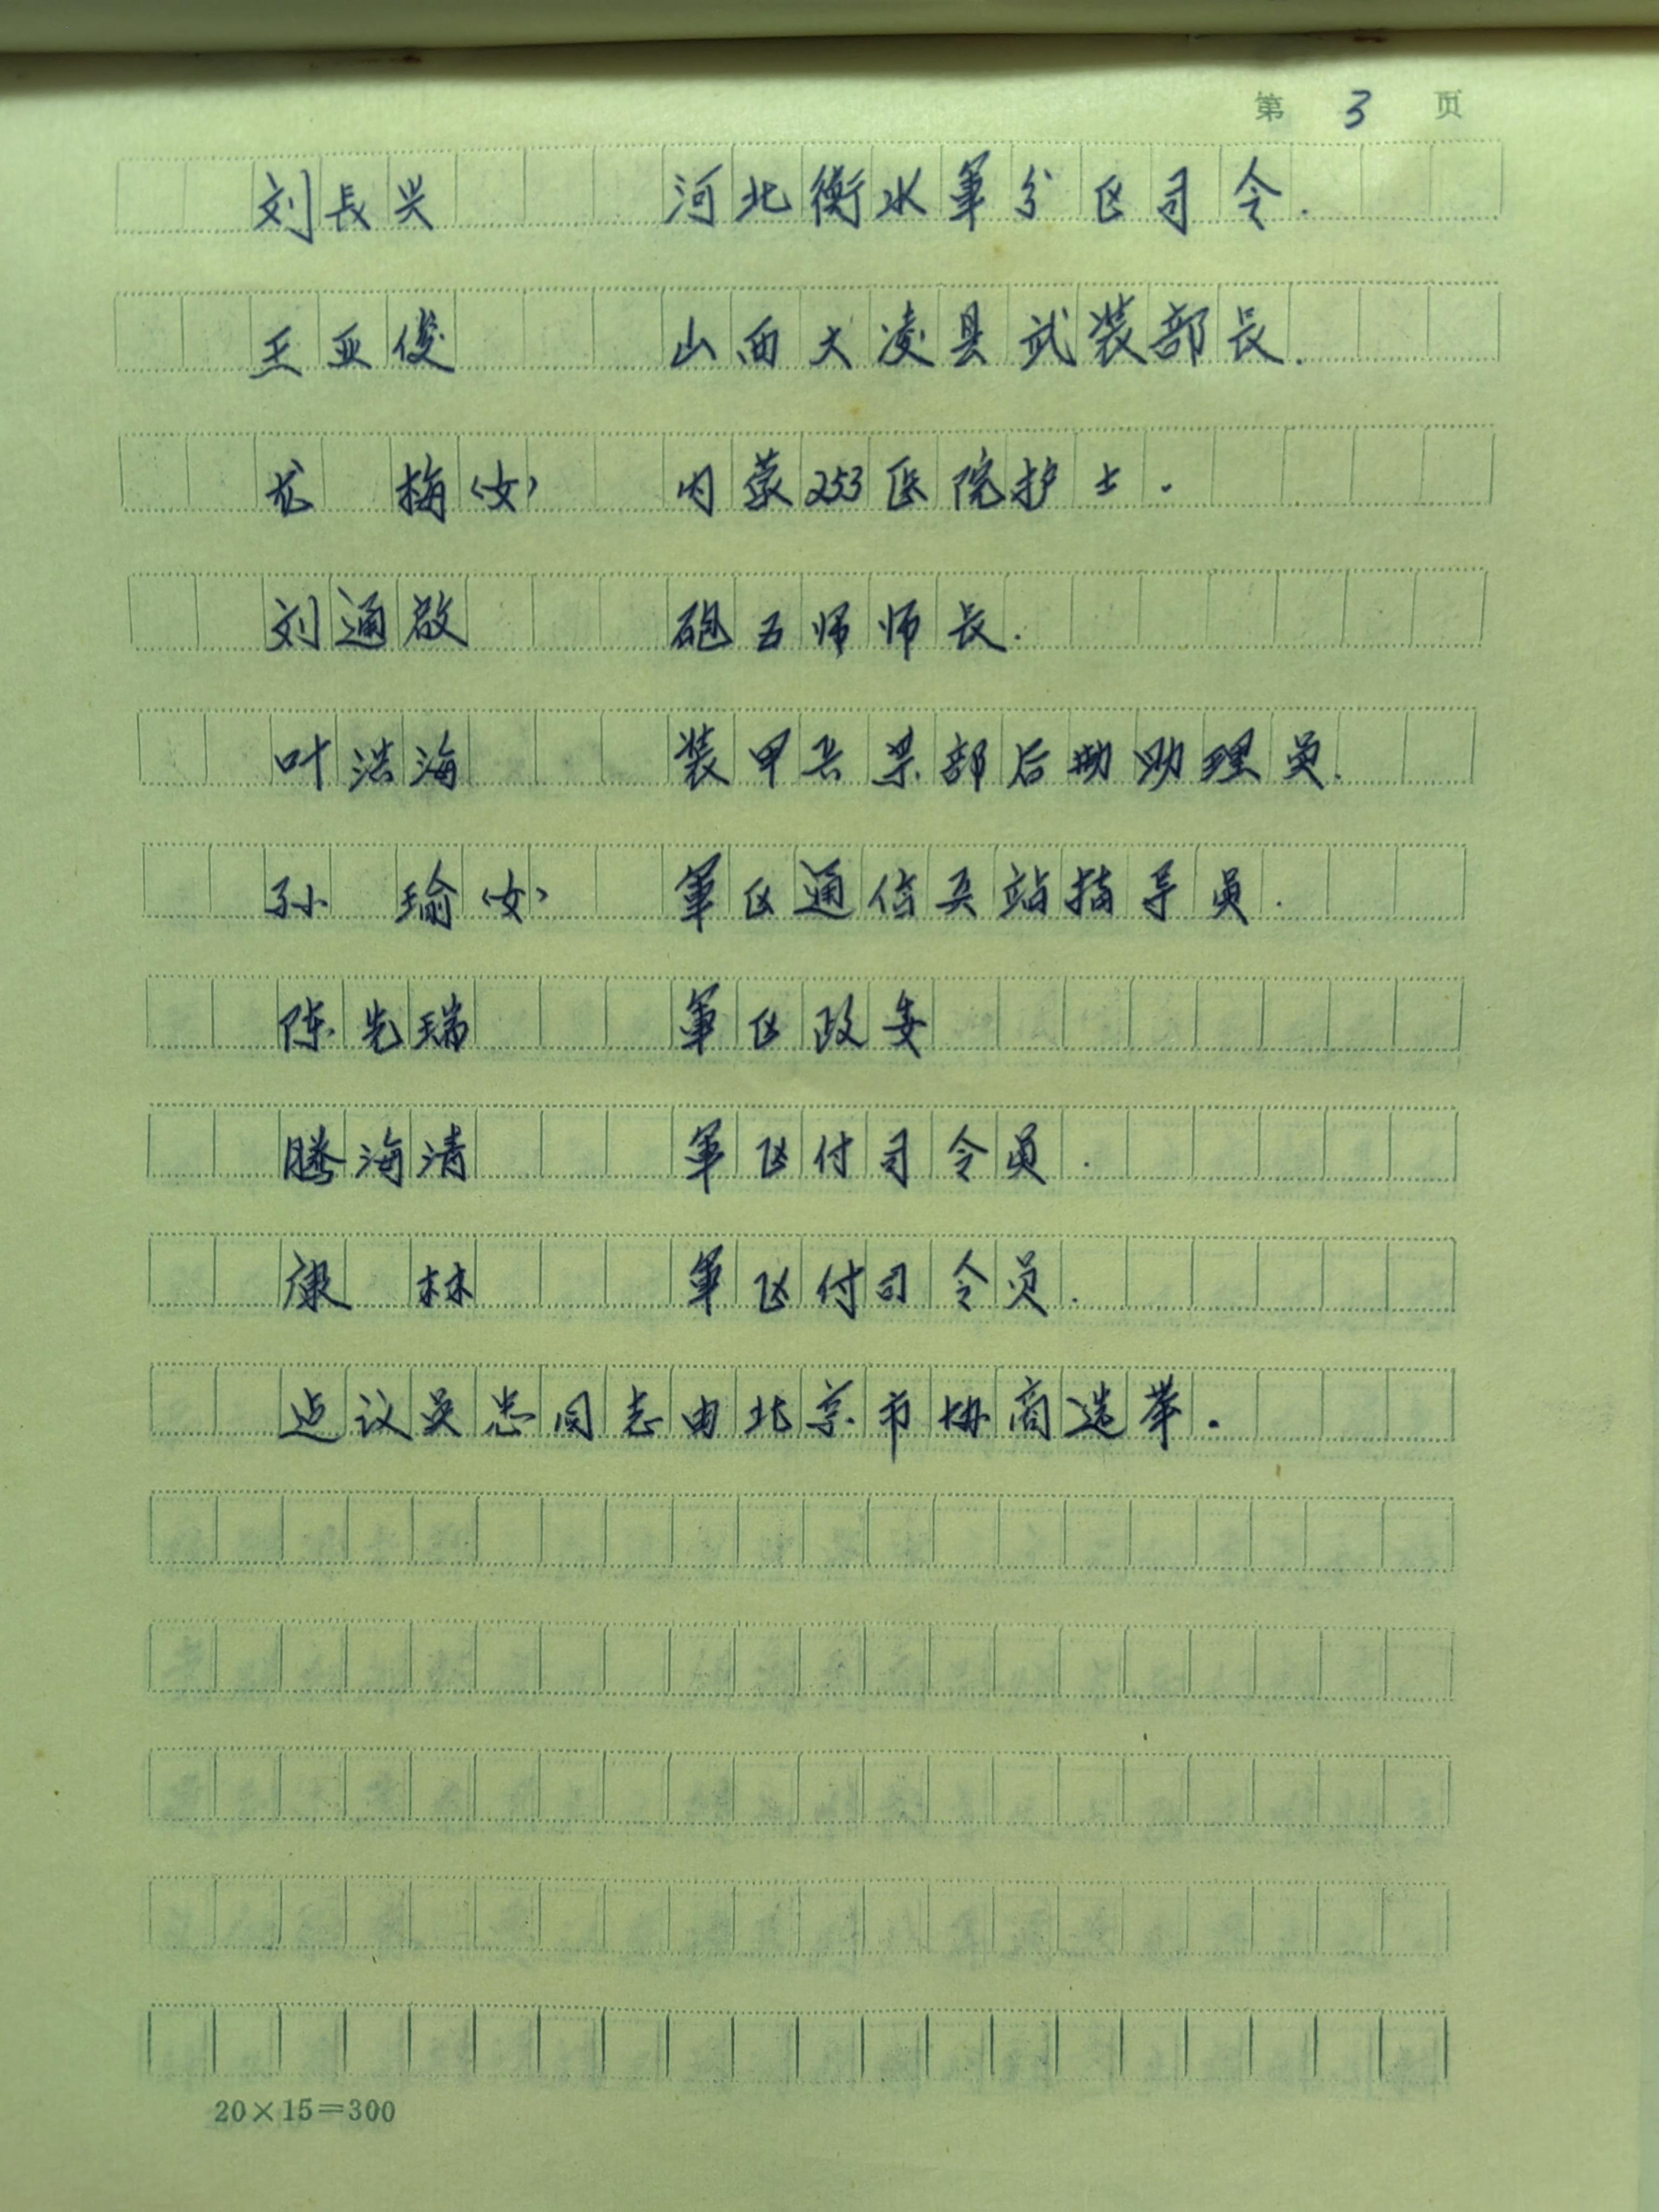 第 3 页
刘長兴 河北衡水軍分区司令.
王亚俊 山西大凌县武装部長.
龙 梅(女) 内蒙253医院护士.
刘通啟 砲五师师長.
叶浩海 装甲兵某部后勤助理员.
孙 瑜(女) 軍区通信兵站指导员.
陈先瑞 軍区政委
腾海清 軍区付司令员.
康 林 軍区付司令员.
迠议吴忠同志由北京市协商选举.
20×15=300